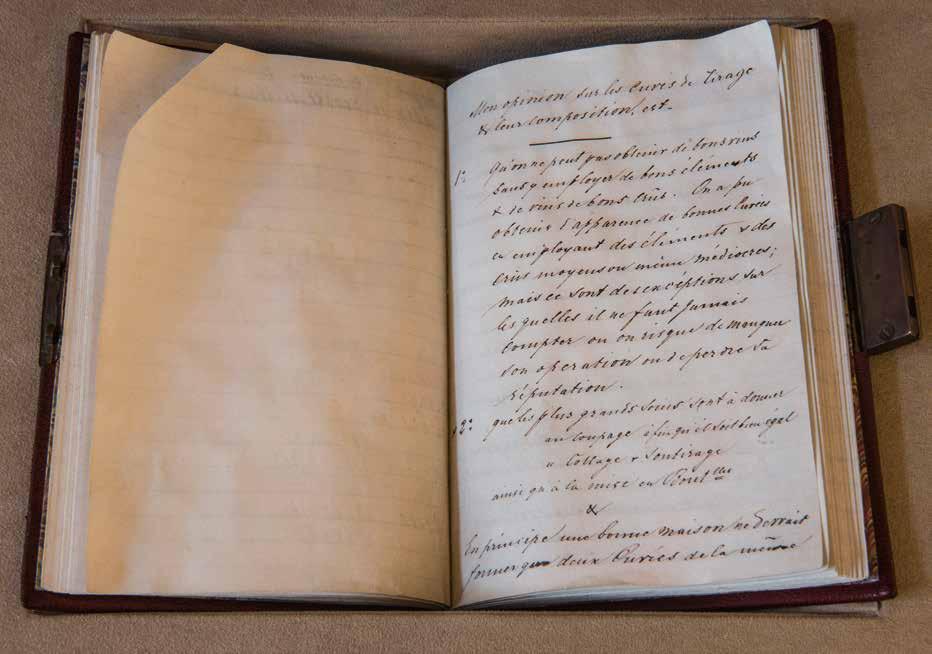 Mon opinion sur les Cuvées de Tirage
& leur composition, est-
1º Qu'on ne peut pas obtenir de bons vins
sans y employer de bons éléments
& de vins de bons Crûs. On a pu
obtenir d'apparence de bonnes Cuvées
en employant des éléments & des
Crûs moyens ou même médiocres;
mais ce sont des exceptions sur
les quelles il ne faut jamais
compter ou on risque de manquer
son opération ou de perdre sa
réputation.
2º que les plus grands soins sont à donner
au Coupage afin qu'il soit bien égal
au Collage & Soutirage
ainsi qu'à la mise en Bout lles
&
En principe une bonne maison ne devrait
former que deux Cuvées de la même